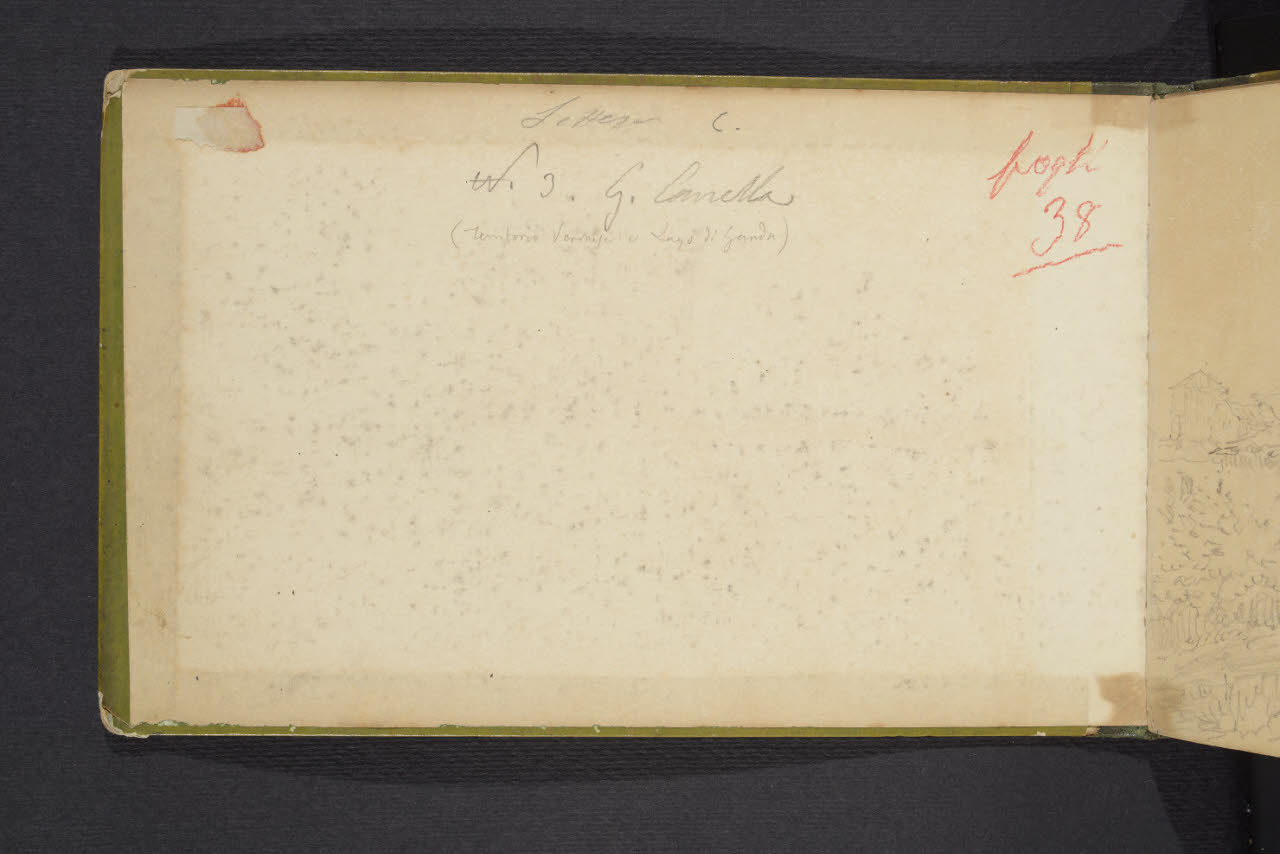 Lettera C.
N. 3. G. Canella
(Territorio Veronese e Lago di Garda)
fogli
38